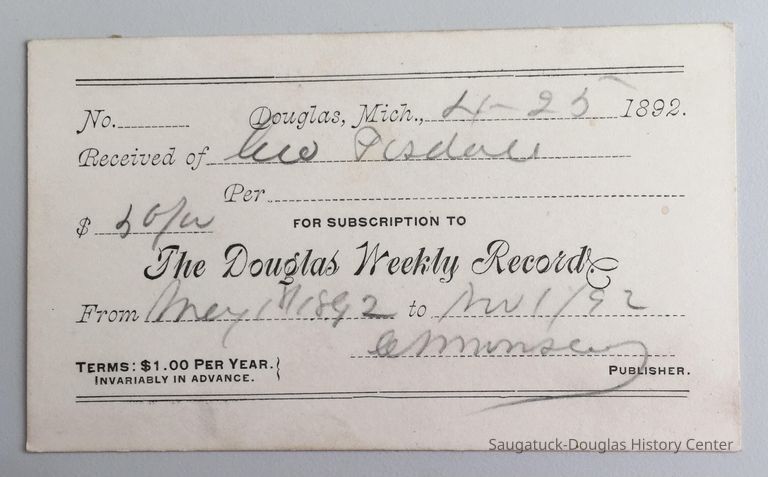 No. Douglas, Mich., 4-25 1892.
Received of Geo
Per
$ 50/
FOR SUBSCRIPTION TO
The Douglas Weekly Record
From May 1st 1892 to Nov 1/92
TERMS: $1.00 PER YEAR.
INVARIABLY IN ADVANCE.
PUBLISHER.
Saugatuck-Douglas History Center